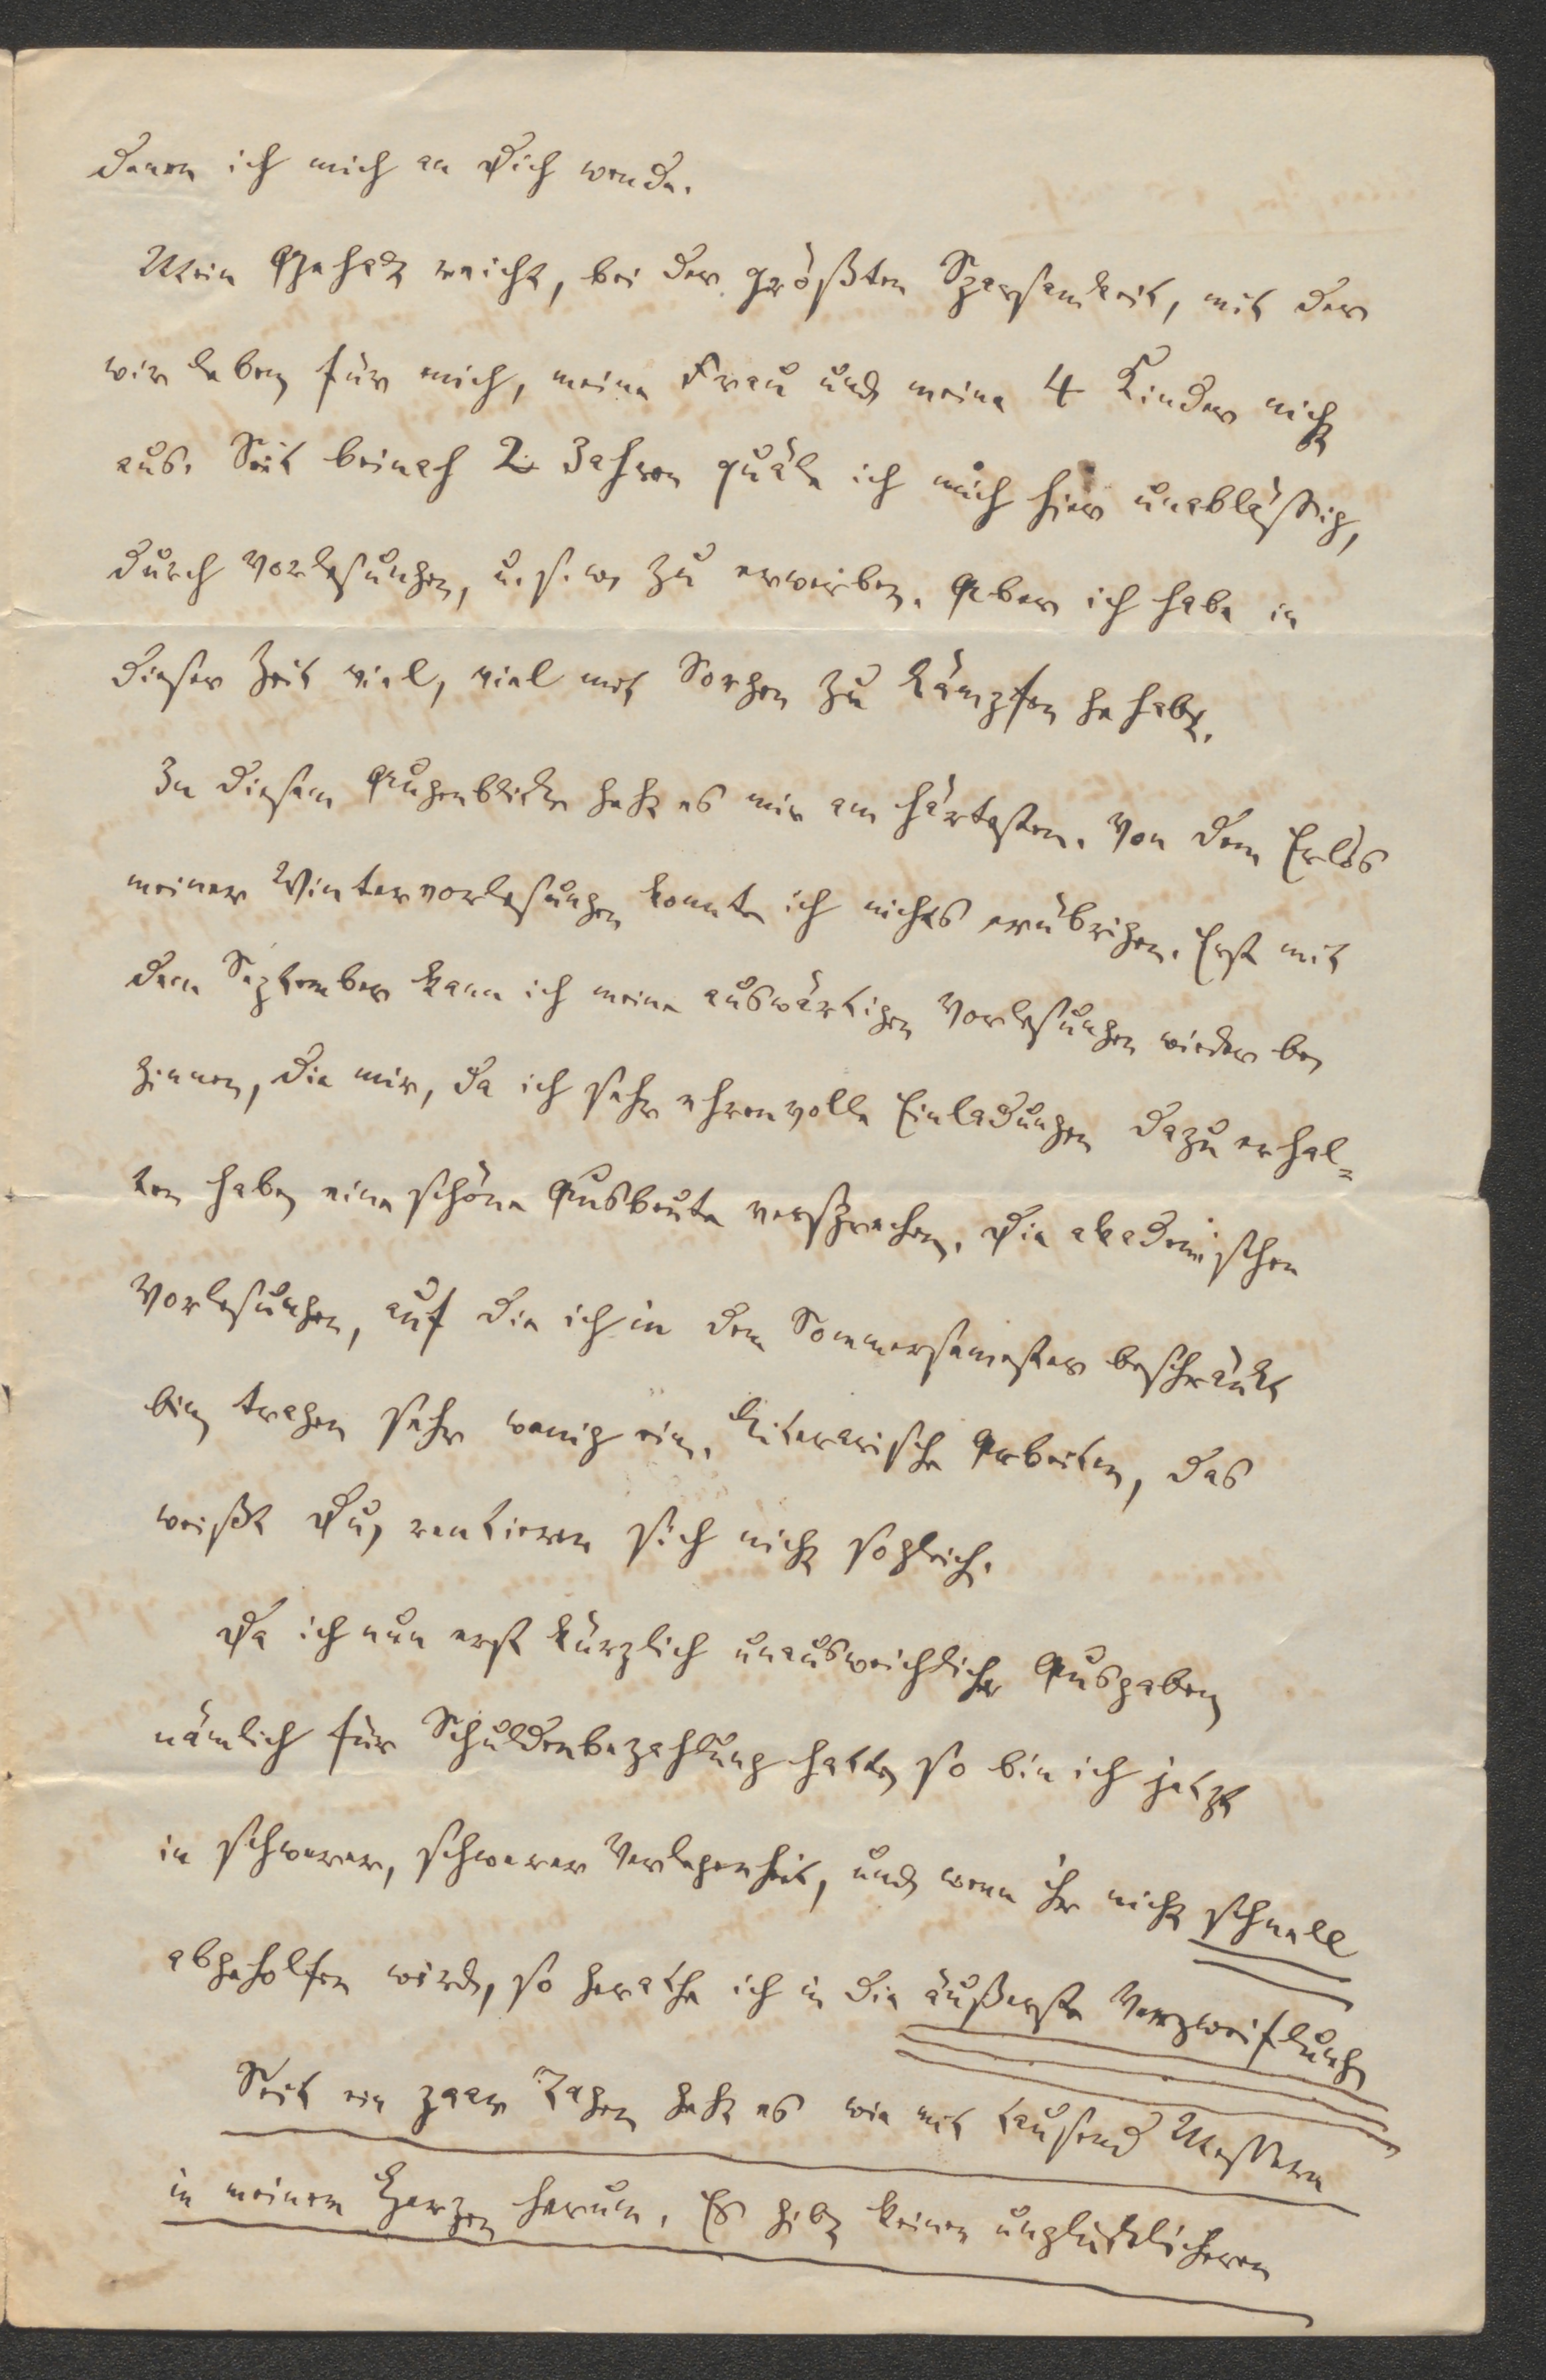 denen ich mich an Dich wende.
Mein Gehalt reicht, bei der größten Sparsamkeit, mit der
wir leben für mich, meine Frau und meine 4 Kinder nicht
aus. Seit beinah 2 Jahren quäle ich mich hier unabläßig,
durch Vorlesungen, u. s. w. zu erwerben. Aber ich habe in
dieser Zeit viel, viel mit Sorgen zu kämpfen gehabt.
In diesem Augenblicke geht es mir am härtesten. Von dem Erlös
meiner Wintervorlesungen konnte ich nichts erübrigen. Erst mit
dem September kann ich meine auswärtigen Vorlesungen wieder be
ginnen, die mir, da ich sehr ehrenvolle Einladungen dazu erhal=
ten habe, eine schöne Ausbeute versprechen. Die akademischen
Vorlesungen, auf die ich in dem Sommersemester beschränkt
bin, tragen sehr wenig ein. Literarische Arbeiten, das
weißt Du, rentieren sich nicht sogleich.
Da ich nun erst kürzlich unausweichliche Ausgaben,
nämlich für Schuldenbezahlung hatte, so bin ich jetzt
in schwerer, schwerer Verlegenheit, und wenn ihr nicht schnell
abgeholfen wird, so gerathe ich in die äußerste Verzweiflung,
Seit ein paar Tagen geht es wie mit tausend Messern
in meinem Herzen herum. Es gibt keinen unglücklicheren